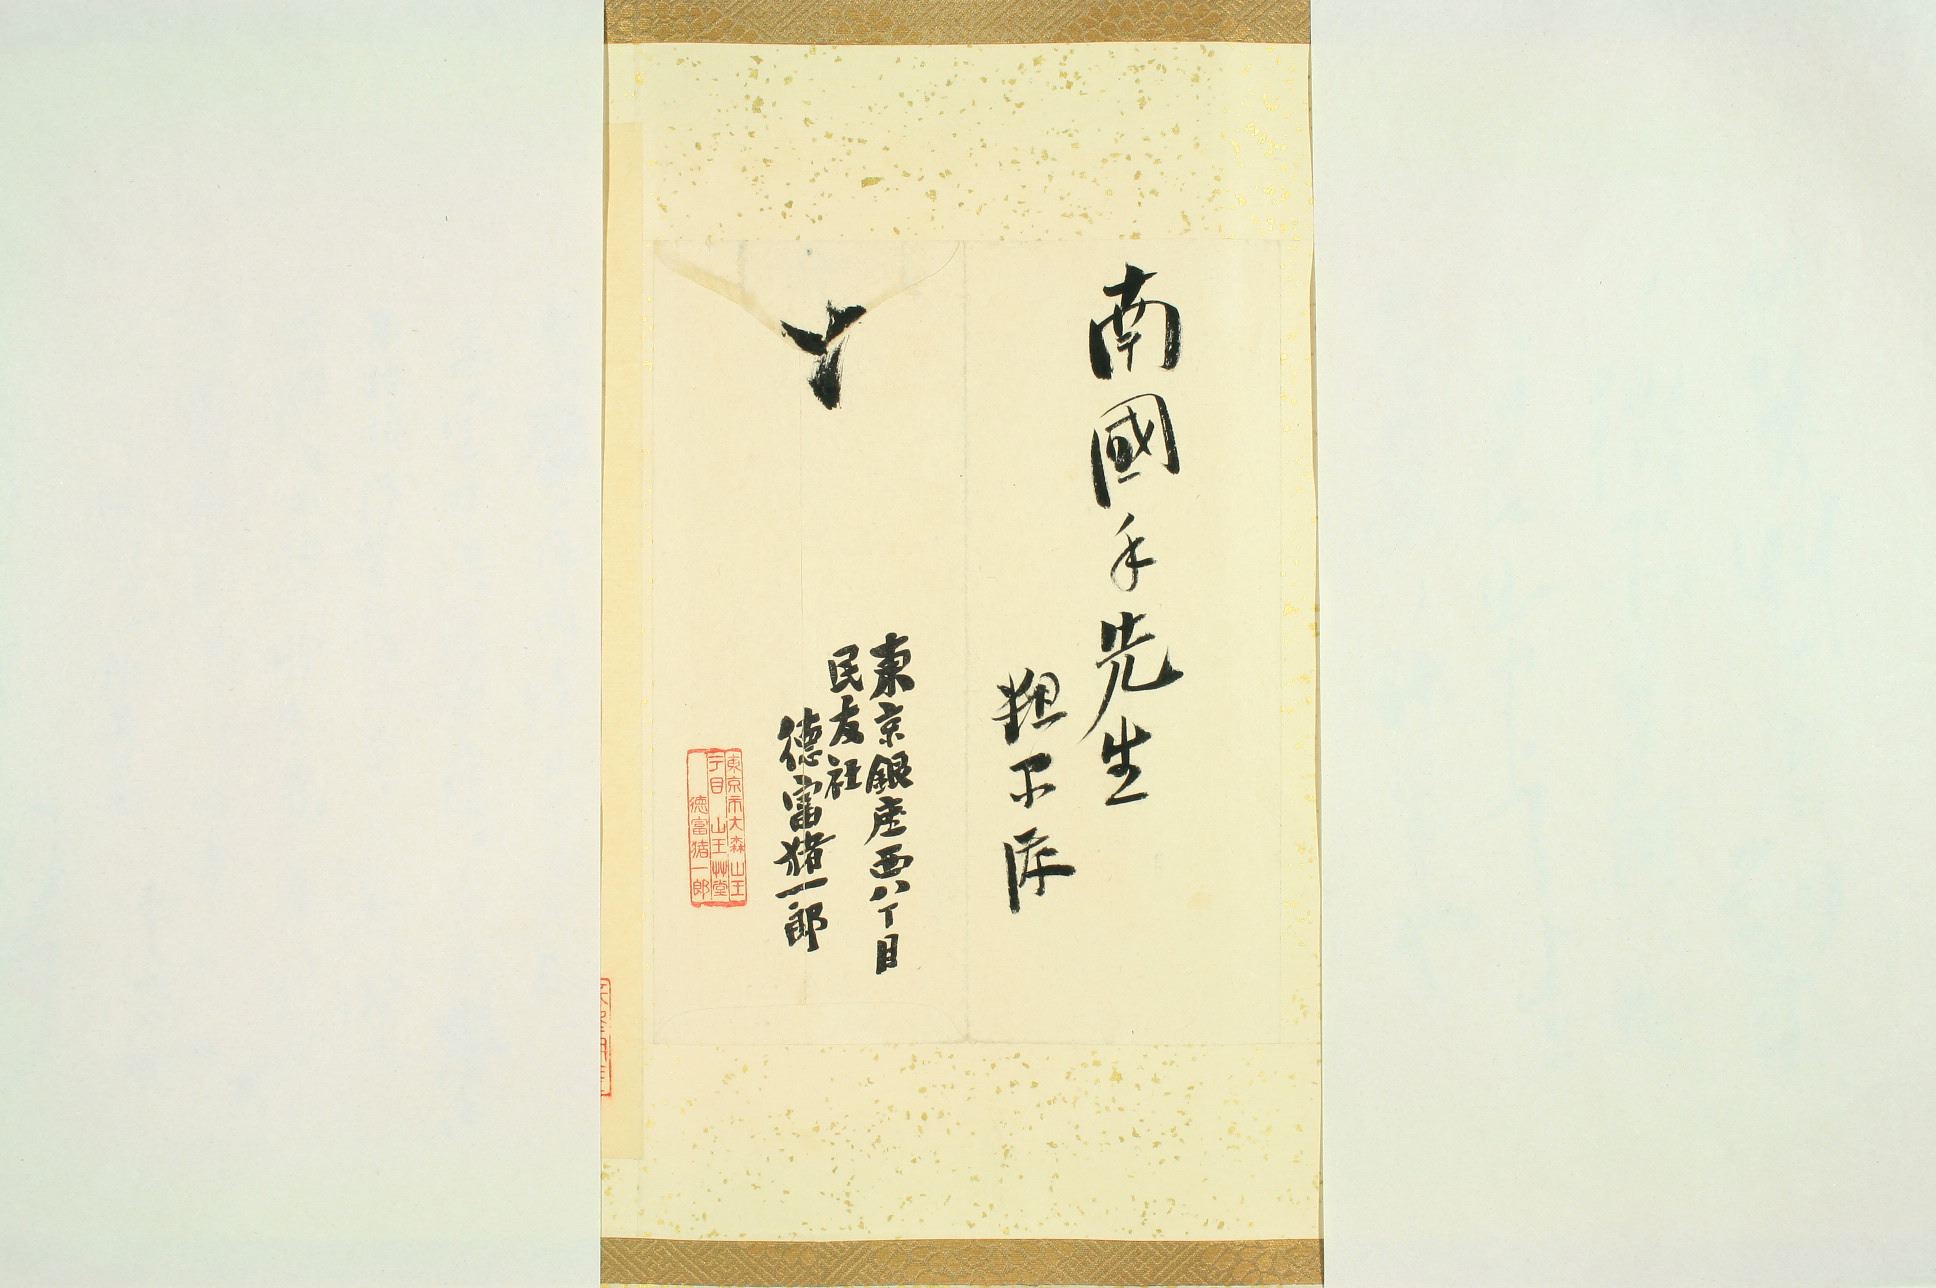 南國手先生
東京銀座西八丁目
民友社
徳富猪一郎
東京市大森山王
丁目 山王艸堂
徳富猪一郎